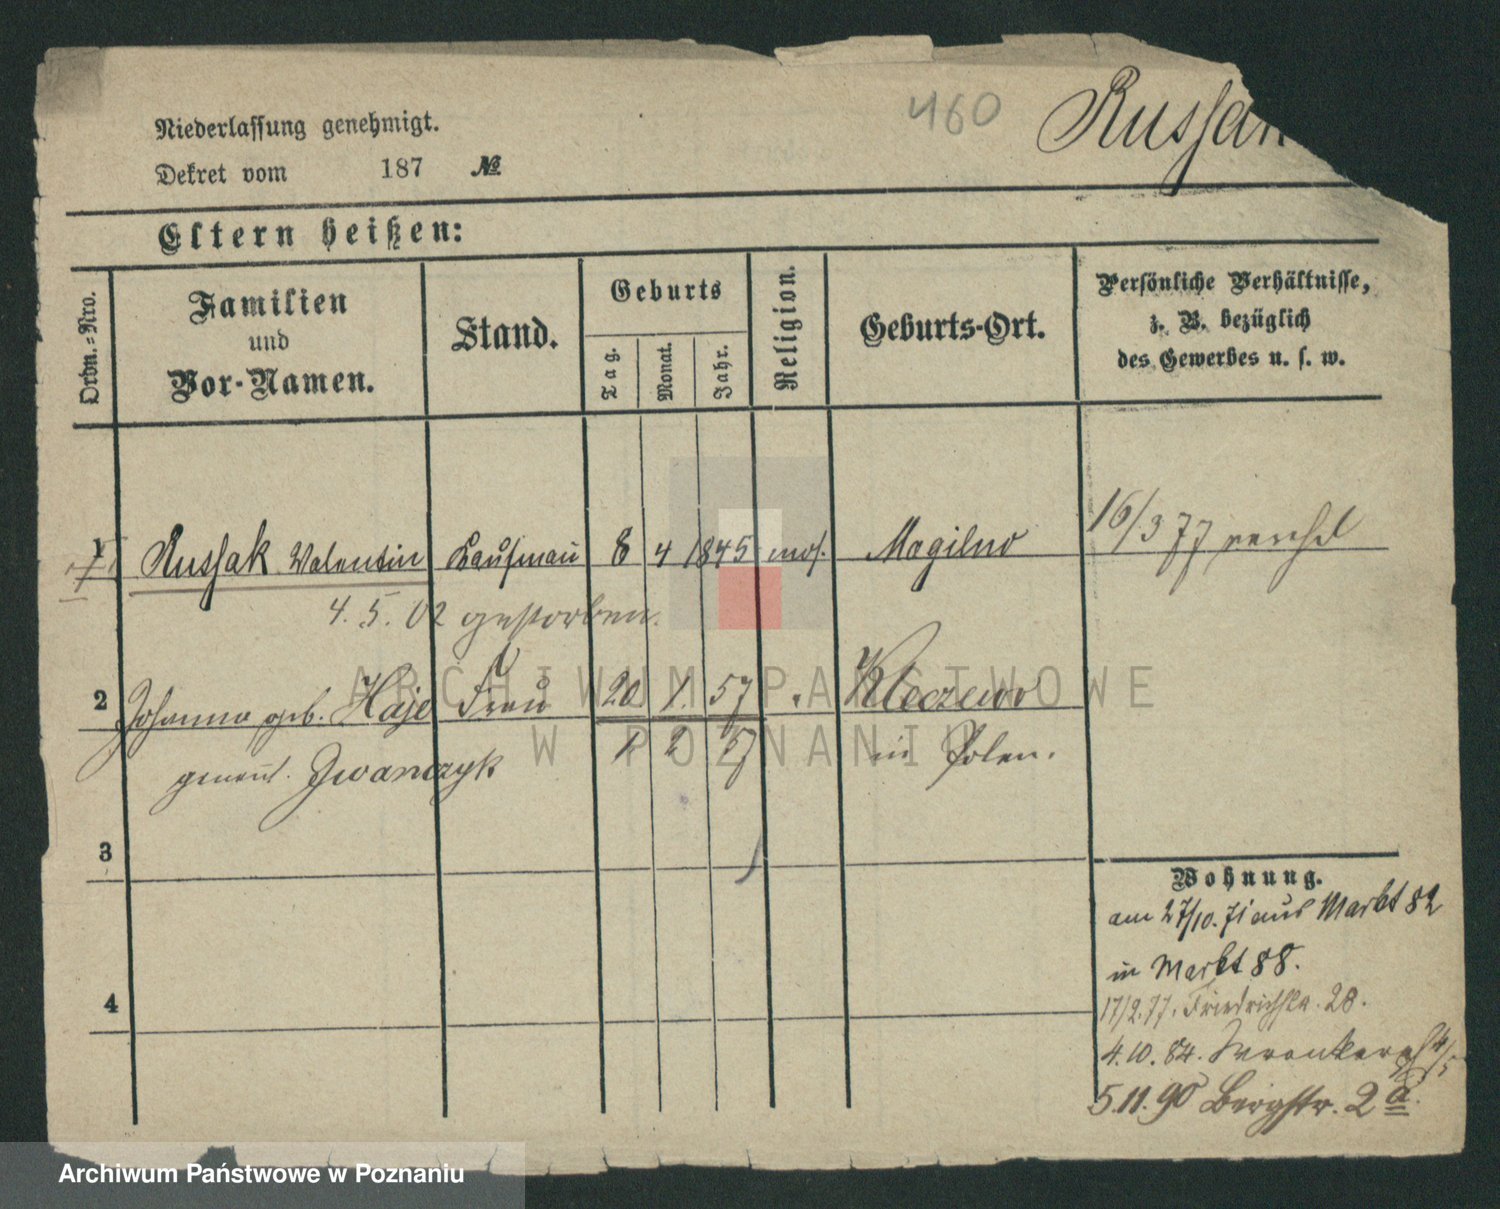 460
Russak
Niederlassung genehmigt.
Dekret vom 187 №
Eltern heißen:
Ordn.-Nro.
Familien
und
Vor-Namen.
Stand.
Geburts
Tag.
Monat.
Jahr.
Religion.
Geburts-Ort.
Persönliche Verhältnisse,
z. B. bezüglich
des Gewerbes u. s. w.
1 Russak Valentin Kaufmann 8 4 1845 mos. Mogilno 16/3 77
4. 5. 02 gestorben.
2 Johanna geb. Haje Frau 20 1. 57 Kleczewo
genannt. Iwanczyk 1 2 57 in Polen.
3
4
Wohnung.
am 27/10. 71 aus Markt 82
in Markt 88.
17/2. 77. Friedrichstr. 28.
4. 10. 84. Wronkerstr 4/5
5. 11. 90 Bergstr. 2 a.
ARCHIWUM PAŃSTWOWE
W POZNANIU
Archiwum Państwowe w Poznaniu